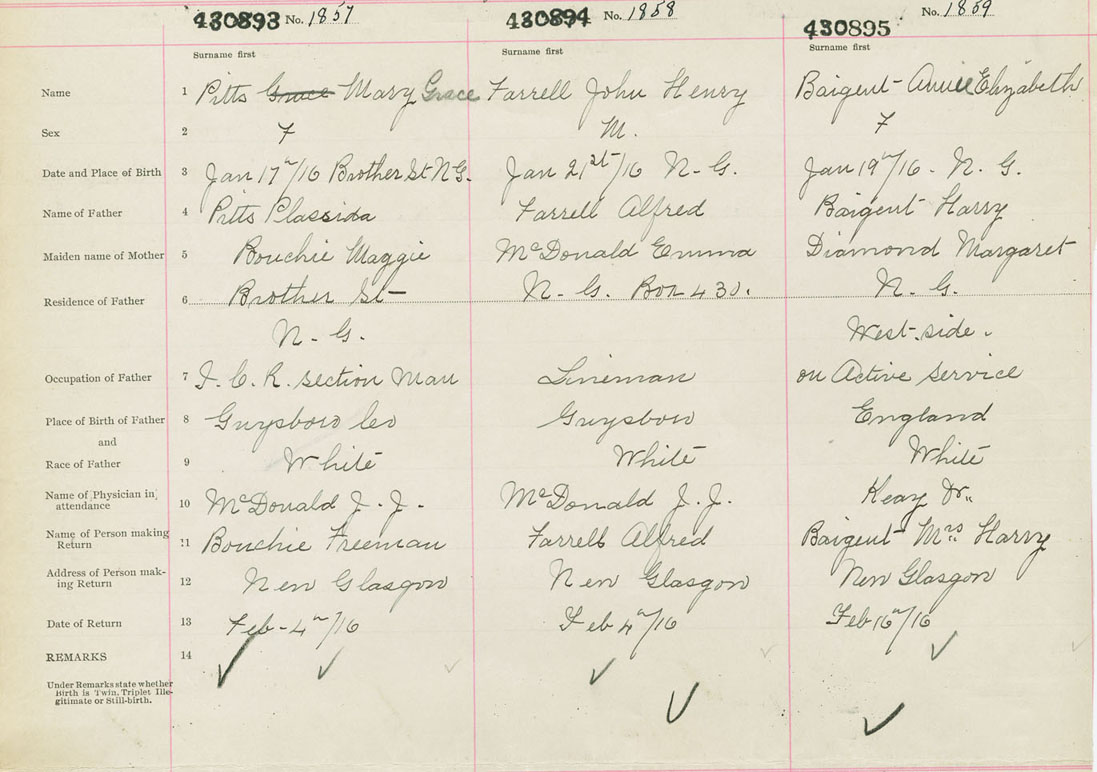 430893 No. 1857 430894 No. 1858 430895 No. 1859
Surname first Surname first Surname first
Name 1 Pitts Grace Mary Grace Farrell John Henry Baigent Annie Elizabeth
Sex 2 F M. F
Date and Place of Birth 3 Jan 17th/16 Brother St N G. Jan 21st/16 N. G. Jan 19th/16. N. G.
Name of Father 4 Pitts Plassida Farrell Alfred Baigent Harry
Maiden name of Mother 5 Bouchie Maggie McDonald Emma Diamond Margaret
Residence of Father 6 Brother St N. G. Box 430. N. G.
N. G. West side.
Occupation of Father 7 I. C. R. section Man Lineman on Active service
Place of Birth of Father 8 Guysboro Co Guysboro England
and
Race of Father 9 White White White
Name of Physician in attendance 10 McDonald J. J. McDonald J. J. Keay Dr.
Name of Person making Return 11 Bouchie Freeman Farrell Alfred Baigent Mrs Harry
Address of Person making Return 12 New Glasgow New Glasgow New Glasgow
Date of Return 13 Feb 4th/16 Feb 4th/16 Feb 16th/16
REMARKS 14
Under Remarks state whether
Birth is Twin, Triplet Ille-
gitimate or Still-birth.